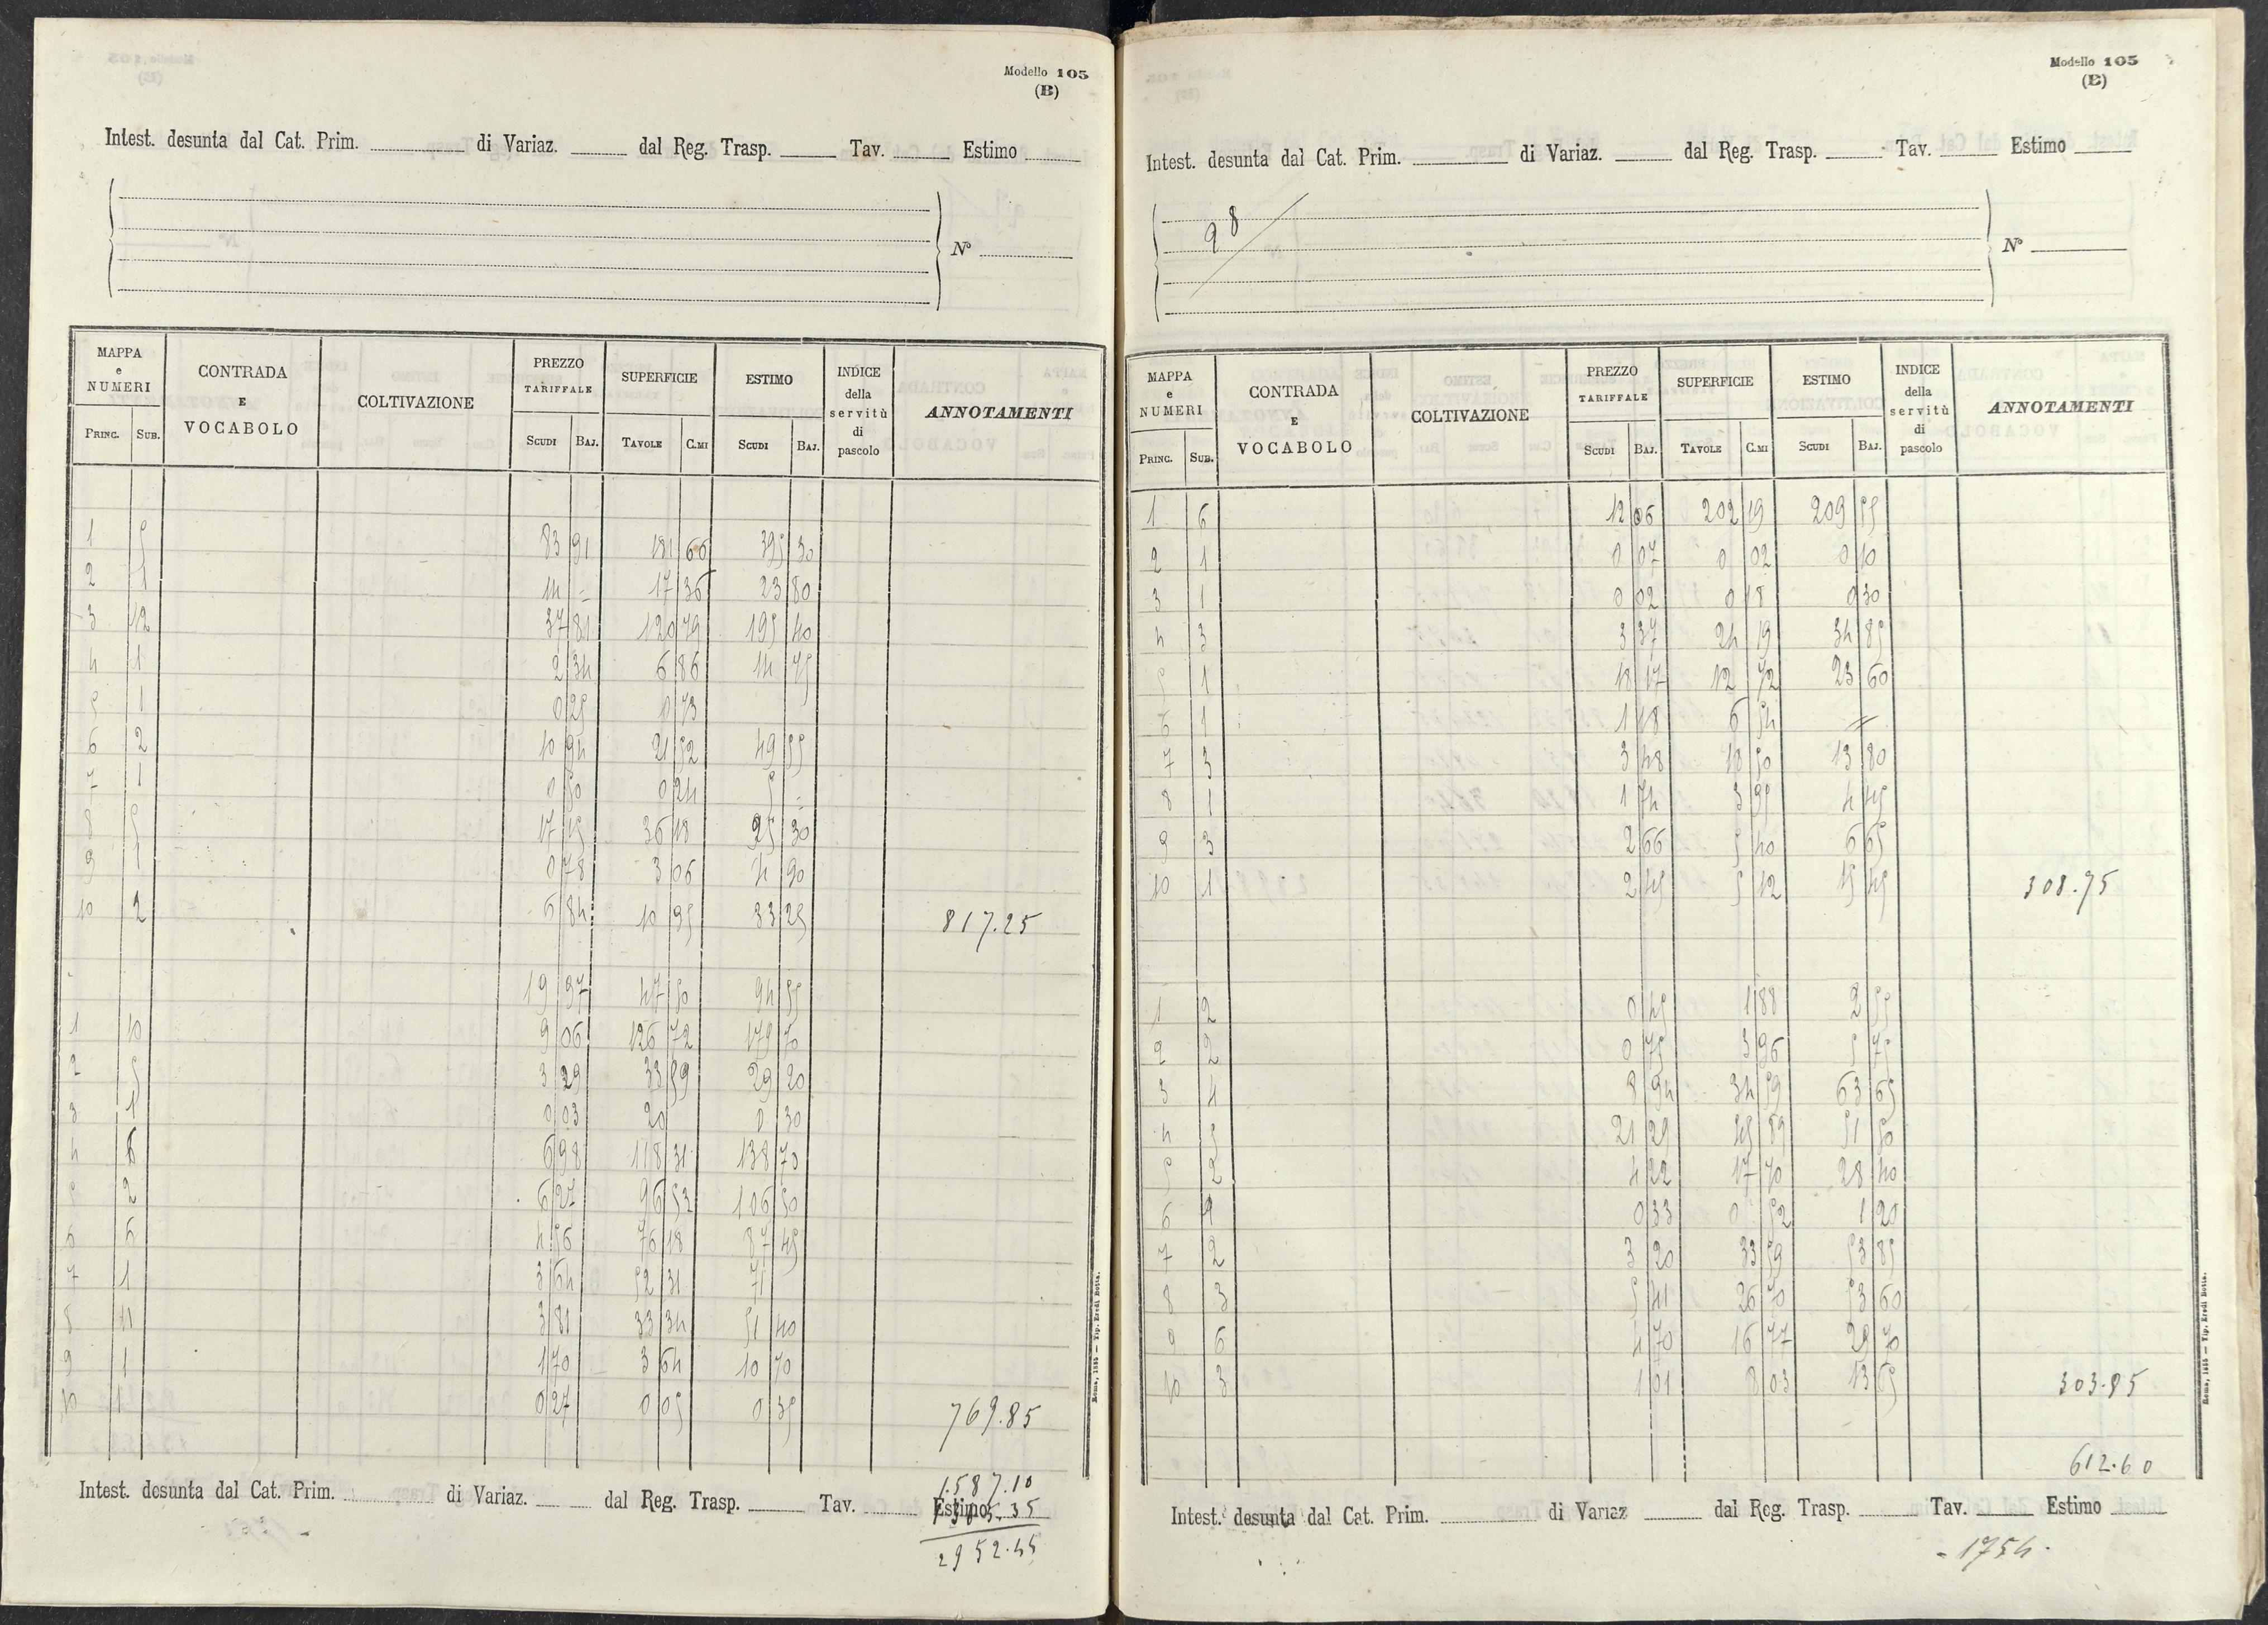 Modello 105
(B)
Intest. desunta dal Cat. Prim. di Variaz. dal Reg. Trasp. Tav. Estimo
N°
MAPPA e NUMERI CONTRADA E VOCABOLO COLTIVAZIONE PREZZO TARIFFALE SUPERFICIE ESTIMO INDICE della servitù di pascolo ANNOTAMENTI
PRINC. SUB. SCUDI BAJ. TAVOLE C.MI SCUDI BAJ.
1 5 83 91 181 66 395 30
2 1 14 - 17 36 23 80
3 12 37 81 120 79 195 40
4 1 2 34 6 86 14 75
5 1 0 25 0 73
6 2 10 94 21 52 49 55
7 1 0 50 0 24 5 -
8 5 17 15 36 18 95 30
9 1 0 78 3 06 4 90
10 2 6 84 10 95 33 25 817.25
19 97 47 50 94 55
1 10 9 06 126 72 179 70
2 5 3 29 33 59 29 20
3 1 0 03 20 0 30
4 6 6 98 118 31 138 70
5 2 6 27 96 52 106 50
6 6 4 56 76 18 87 45
7 1 3 64 52 31 71
8 11 3 81 33 34 51 40
9 1 1 70 3 64 10 70
10 1 0 27 0 05 0 35 769.85
1.587.10
Intest. desunta dal Cat. Prim. di Variaz. dal Reg. Trasp. Tav. Estimo
1365.35
2952.45
Roma, 1885 — Tip. Eredi Botta.
Modello 105
(B)
Intest. desunta dal Cat. Prim. di Variaz. dal Reg. Trasp. Tav. Estimo
98
N°
MAPPA e NUMERI CONTRADA E VOCABOLO COLTIVAZIONE PREZZO TARIFFALE SUPERFICIE ESTIMO INDICE della servitù di pascolo ANNOTAMENTI
PRINC. SUB. SCUDI BAJ. TAVOLE C.MI SCUDI BAJ.
1 6 12 06 202 19 209 55
2 1 0 07 0 02 0 10
3 1 0 02 0 18 0 30
4 3 3 37 24 19 34 85
5 1 18 17 12 72 23 60
6 1 1 18 6 54 //
7 3 3 48 18 50 13 80
8 1 1 74 3 95 4 45
9 3 2 66 5 40 6 65
10 1 2 45 5 12 15 45 308.75
1 2 0 45 1 88 2 55
2 2 0 75 3 96 5 75
3 4 8 94 34 59 63 65
4 5 21 29 45 89 51 50
5 2 4 22 17 70 28 40
6 1 0 33 0 52 1 20
7 2 3 20 33 59 53 85
8 3 5 41 26 70 53 60
9 6 4 70 16 77 29 70
10 3 1 01 8 03 13 65 303.85
612.60
Intest. desunta dal Cat. Prim. di Variaz dal Reg. Trasp. Tav. Estimo
- 1754.
Roma, 1885 — Tip. Eredi Botta.